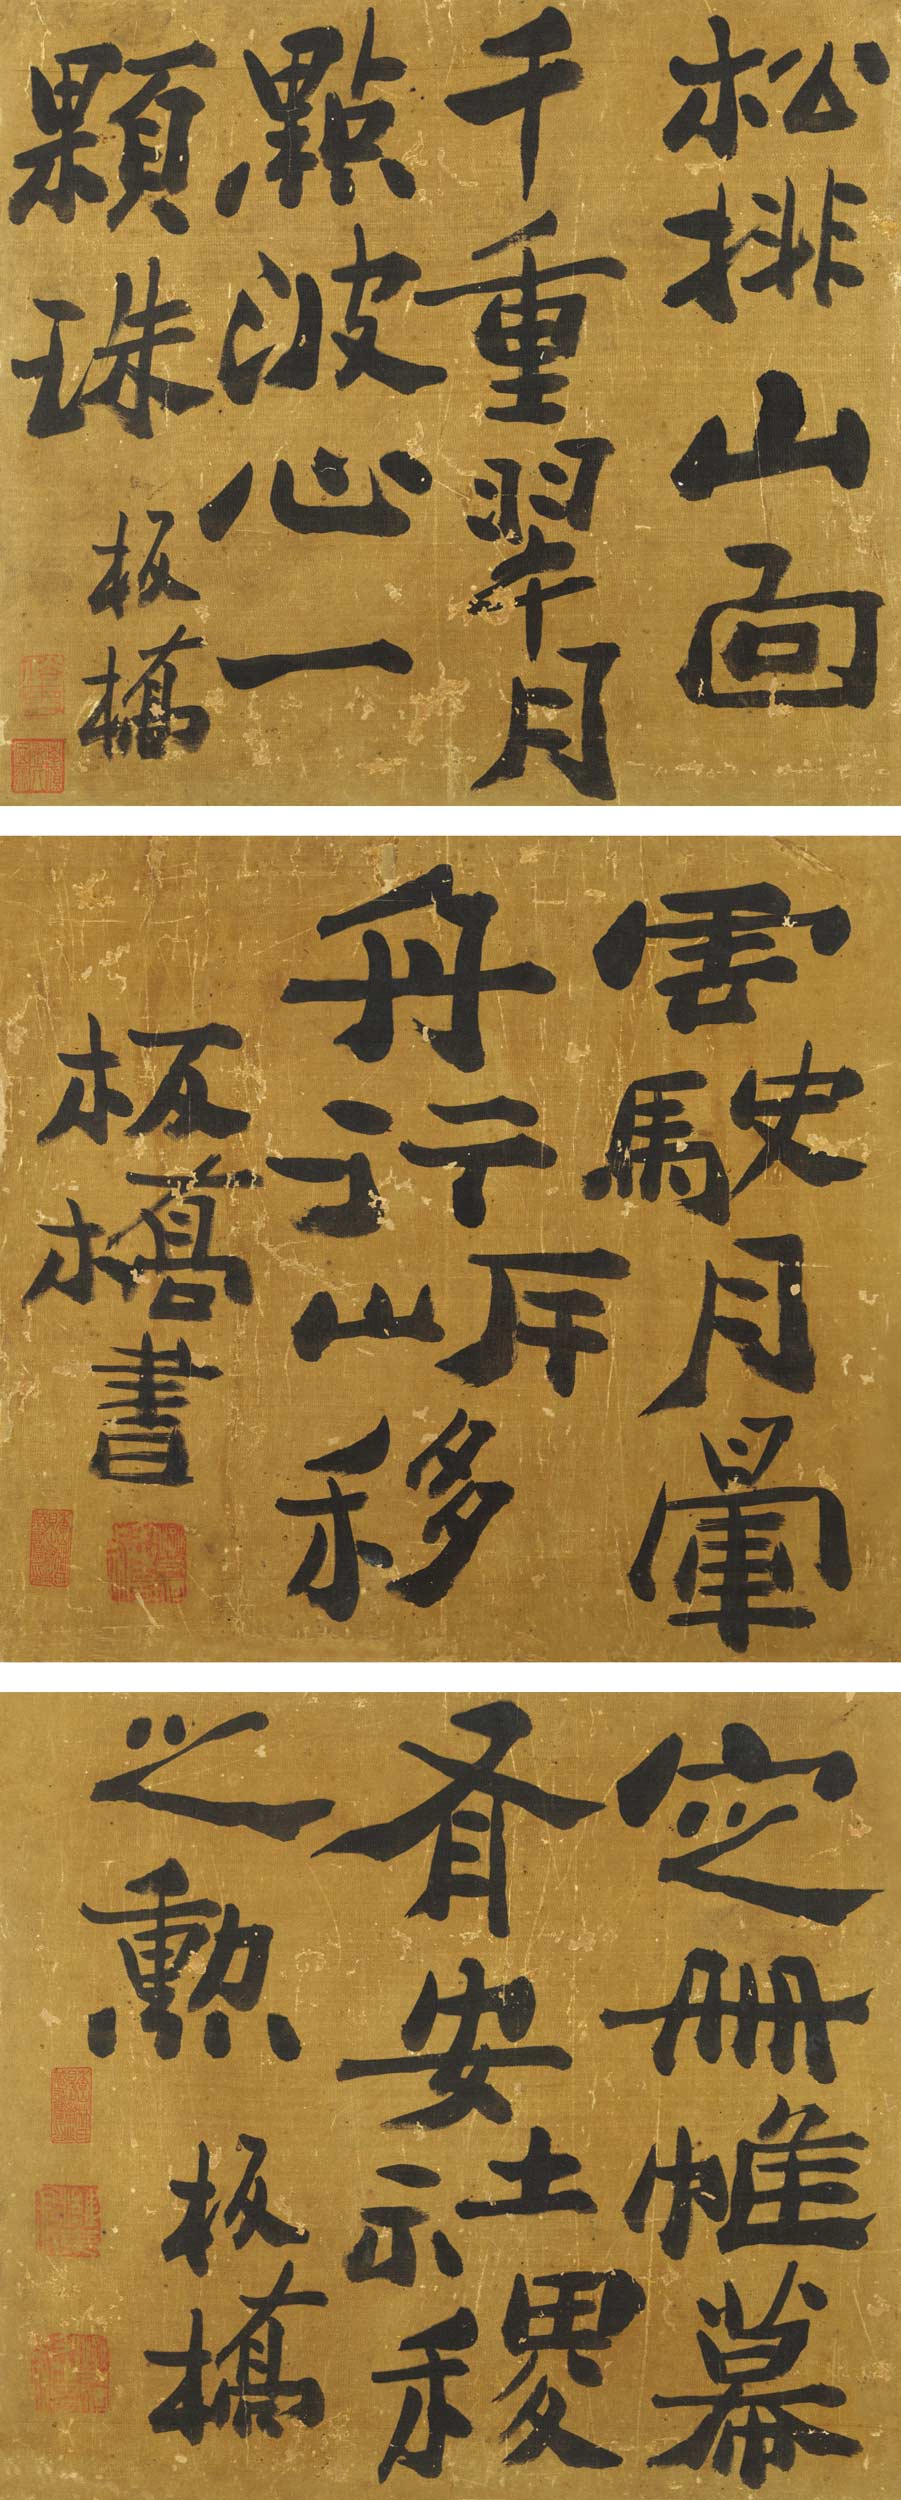 松排山面
千重翠月
點波心一
顆珠 板橋
雲駛月暈
舟行岸移
板橋書
定冊帷幕
有安社稷
之勲 板橋